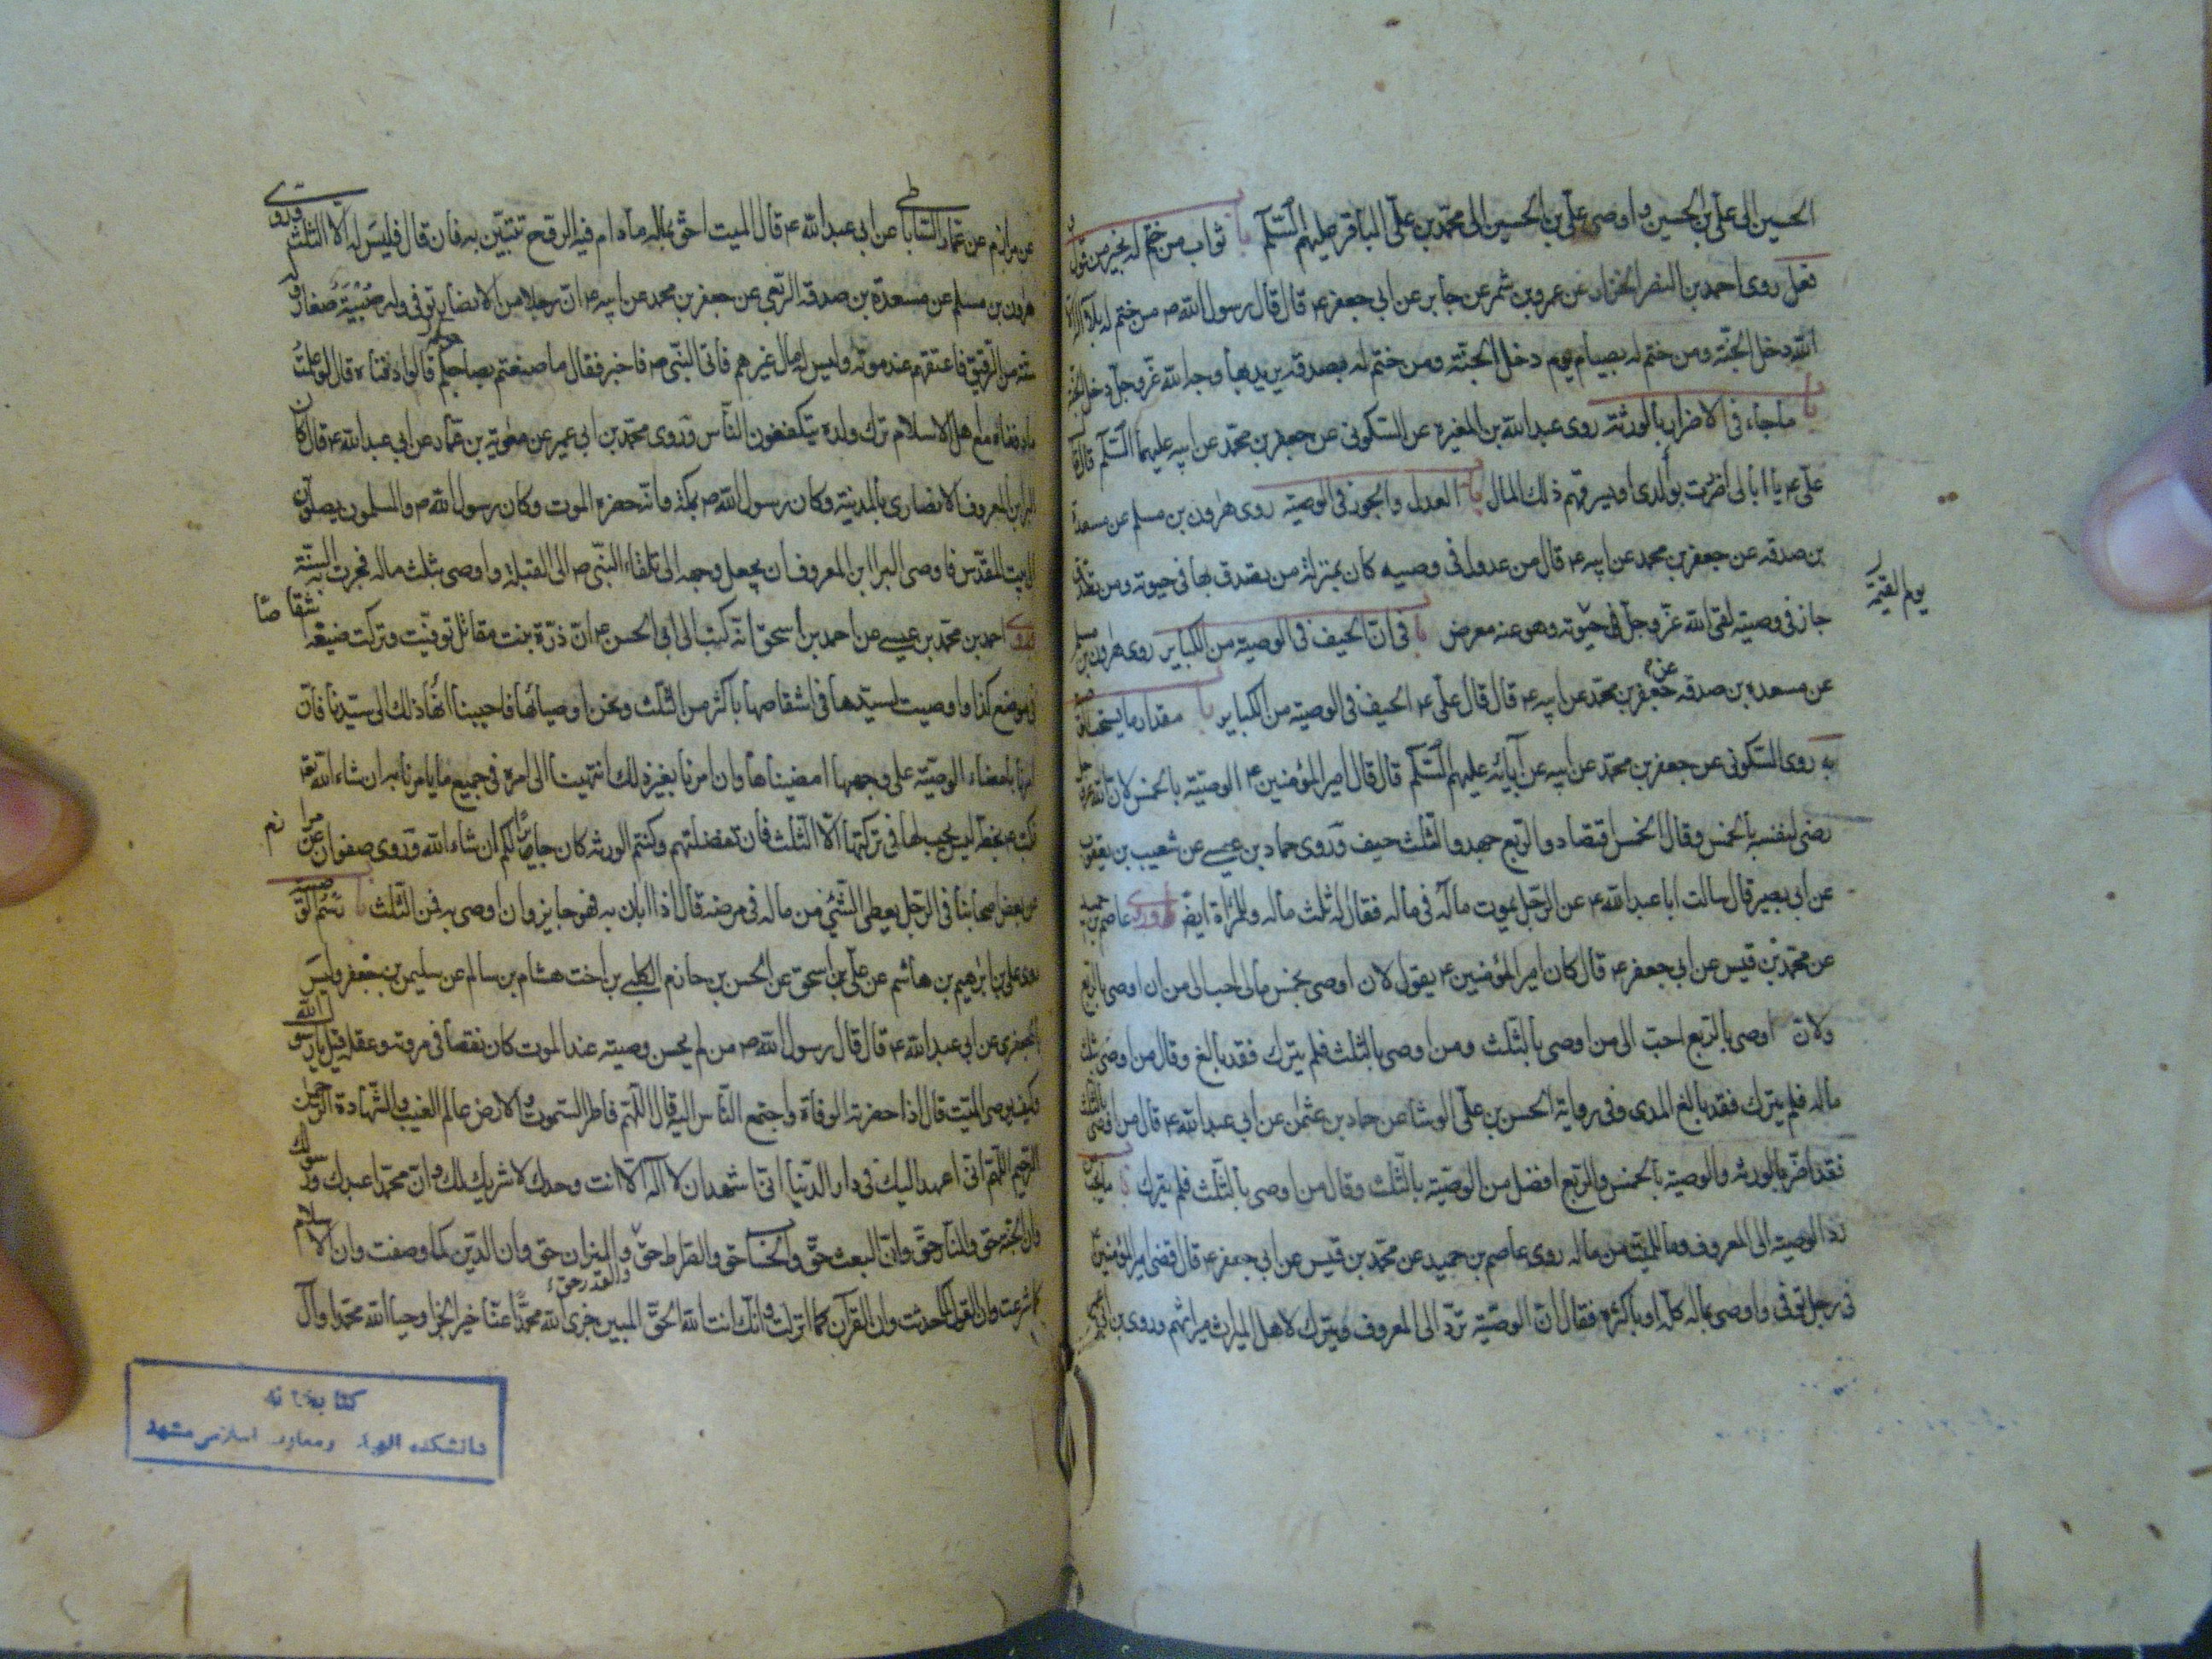 الحسين الى علي بن الحسين واوصى علي بن الحسين الى محمد بن علي الباقر عليهم السلام باب ثواب من ختم له بخير من قول
او فعل روى احمد بن النضر الخزاز عن عمرو بن شمر عن جابر عن ابي جعفر ع قال قال رسول الله ص من ختم له بلا اله الا
الله دخل الجنة ومن ختم له بصيام يوم دخل الجنة ومن ختم له بصدقة يريد بها وجه الله عز وجل دخل الجنة
باب ما جاء في الاضرار بالورثة روى عبد الله بن المغيرة عن السكوني عن جعفر بن محمد عن ابيه عليهما السلم قال قال
علي ع ما ابالى اضررت بولدى او سرقتهم ذلك المال باب العدل والجور في الوصية روى هرون بن مسلم عن مسعدة
بن صدقه عن جعفر بن محمد عن ابيه ع قال من عدل في وصيه كان بمنزلة من تصدق بها في حيوته ومن
جار في وصيته لقى الله عز وجل يوم القيمة وهو عنه معرض باب في ان الحيف في الوصية من الكباير روى هرون بن مسلم
عن مسعده بن صدقه عن جعفر بن محمد عن ابيه ع قال قال علي ع الحيف في الوصية من الكباير باب مقدار ما يستحب
به روى السكوني عن جعفر بن محمد عن ابيه عن آبائه عليهم السلم قال قال امير المؤمنين ع الوصية بالخمس لان الله عز وجل
رضى لنفسه بالخمس وقال الخمس اقتصاد والربع جهد والثلث حيف وروى حماد بن عيسى عن شعيب بن يعقوب
عن ابي بصير قال سالت ابا عبد الله ع عن الرجل يموت ماله في ماله فقال له ثلث ماله وللمرأة ايض وروى عاصم بن حميد
عن محمد بن قيس عن ابي جعفر ع قال كان امير المؤمنين ع يقول لان اوصى بخمس مالى احب الى من ان اوصى بالربع
ولان اوصى بالربع احب الى من اوصى بالثلث ومن اوصى بالثلث فلم يترك فقد بالغ وقال من اوصى بثلث
ماله فلم يترك فقد بالغ المدى وفى رواية الحسن بن علي الوشا عن حماد بن عثمن عن ابي عبد الله ع قال من اوصى بالثلث
فقد اضر بالورثه والوصية بالخمس والربع افضل من الوصية بالثلث وقال من اوصى بالثلث فلم يترك باب ما يجب من
رد الوصية الى المعروف وما للميت من ماله روى عاصم بن حميد عن محمد بن قيس عن ابي جعفر ع قال قضى امير المؤمنين
في رجل توفى واوصى بماله كله او باكثره فقال ان الوصية ترد الى المعروف ويترك لاهل الميراث ميراثهم وروى بن ابي عمير
عن مرازم عن عمار الساباطى عن ابي عبد الله ع قال الميت احق بماله ما دام فيه الروح تبين به فان قال فليس له الا الثلث وروى
هرون بن مسلم عن مسعدة بن صدقة الربعى عن جعفر بن محمد عن ابيه ع ان رجلا من الانصار توفى وله صبية صغار وله
ستة من الرقيق فاعتقهم عند موته وليس له مال غيرهم فاتى النبي ص فاخبر فقال ما صنعتم بصاحبكم قالوا دفناه قال لو علمت
ما دفناه مع اهل الاسلام ترك ولده يتكففون الناس وروى محمد بن ابي عمير عن معوية بن عمار عن ابي عبد الله ع قال كان
البرا بن المعروف الانصارى بالمدينة وكان رسول الله ص بمكة وانه حضره الموت وكان رسول الله ص والمسلمون يصلون
الى بيت المقدس فاوصى البرا ابن المعروف ان يجعل وجهه الى تلقاء النبي ص الى القبلة واوصى بثلث ماله فجرت به السنة
وروى احمد بن محمد بن عيسى عن احمد بن اسحق انه كتب الى ابي الحسن ع ان درة بنت مقاتل توفيت وتركت ضيعة اشقاصا
في موضع كذا واوصيت لسيدها في اشقاصها باكثر من الثلث ونحن اوصيائها فاحببنا انهاء ذلك الى سيدنا فان
امرنا بامضاء الوصية على وجهها امضيناها وان امرنا بغير ذلك انتهينا الى امره في جميع ما يامرنا به ان شاء الله تعه
فكتب ع بخطه ليس يجب لها في تركتها الا الثلث فان تفضلتم وكنتم الورثة كان جايزا لكم ان شاء الله وروى صفوان عن مرازم
عن بعض اصحابنا في الرجل يعطى الشئ من ماله في مرضه قال اذا ابان به فهو جايز وان اوصى به فمن الثلث باب رسم الوصية
روى علي بن ابرهيم بن هاشم عن علي بن اسحق عن الحسن بن حازم الكلبى بن اخت هشام بن سالم عن سليمن بن جعفر وليس
الجعفرى عن ابي عبد الله ع قال قال رسول الله ص من لم يحسن وصيته عند الموت كان نقصا في مروته وعقله قيل يا رسول الله
وكيف يوصى الميت قال اذا حضرته الوفاة واجتمع الناس اليه قال اللهم فاطر السموت والارض عالم الغيب والشهادة الرحمن
الرحيم اللهم انى اعهد اليك في دار الدنيا انى اشهد ان لا اله الا انت وحدك لا شريك لك وان محمدا عبدك ورسولك
وان الجنة حق والنار حق وان البعث حق والحساب حق والصراط حق والقدر حق والميزان حق وان الدين كما وصفت وان الاسلام
كما شرعت وان القول كما حدثت وان القرآن كما انزلت وانك انت الله الحق المبين جزى الله محمدا عنا خير الجزا وحيا الله محمدا وآل
كتابخانه
دانشكده الهيات ومعارف اسلامى مشهد